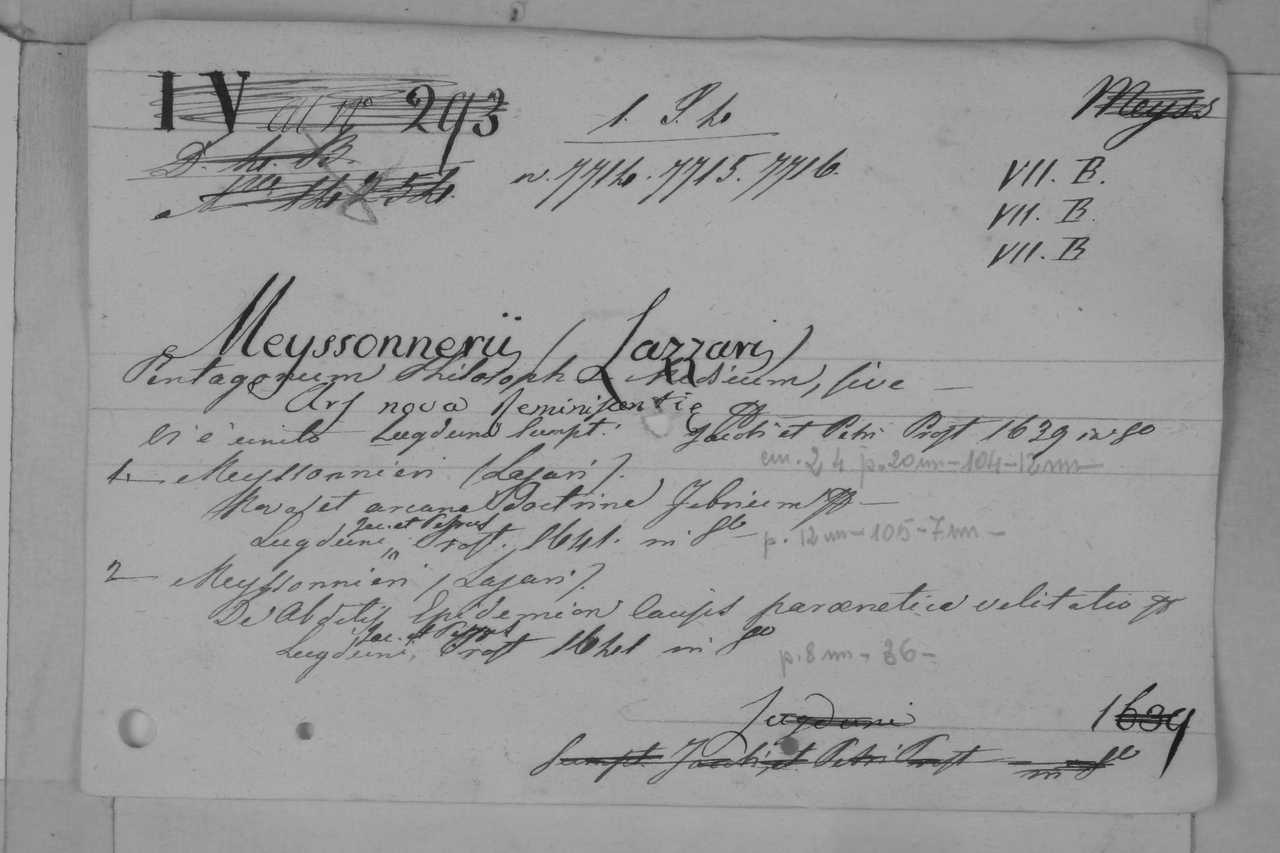 IV al n° 293
1. P. h
Meyss
D. h. B.
n. 7714. 7715. 7716.
VII. B.
VII. B.
VII. B
Meyssonnerii (Lazzari)
Pentagonum Philosoph Medicum, sive —
Ars nova Reminiscentiæ
Vi è unito Lugduni Sumpt. Jacobi et Petri Prost 1639 in 8°
cm. 24 p. 20 nn - 104 - 12 nn
1. Meyssonnieri (Lazari).
Nova et arcana Doctrina Febrium —
Lugduni, Jac. et Petrus Prost. 1641. in 8°
p. 12 nn - 105 - 7 nn -
2 Meyssonnieri (Lazari).
De Abditis Epidemion causis parænetica velitatio
Lugduni, Jac. et Petrus Prost 1641 in 8°
p. 8 nn - 36 -
Lugduni 1639
Sumpt. Jacobi et Petri Prost in 8°